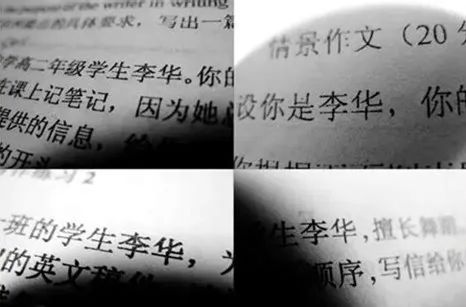 of the writer in writing
具体要求，写出一篇
学高二年级学生李华。你的
在课上记笔记，因为她总
提供的信息，给
的开头
情景作文（20 分
设你是李华，你的
练习 2
一班的学生李华，为
的英文稿
生李华，擅长舞蹈
顺序，写信给你